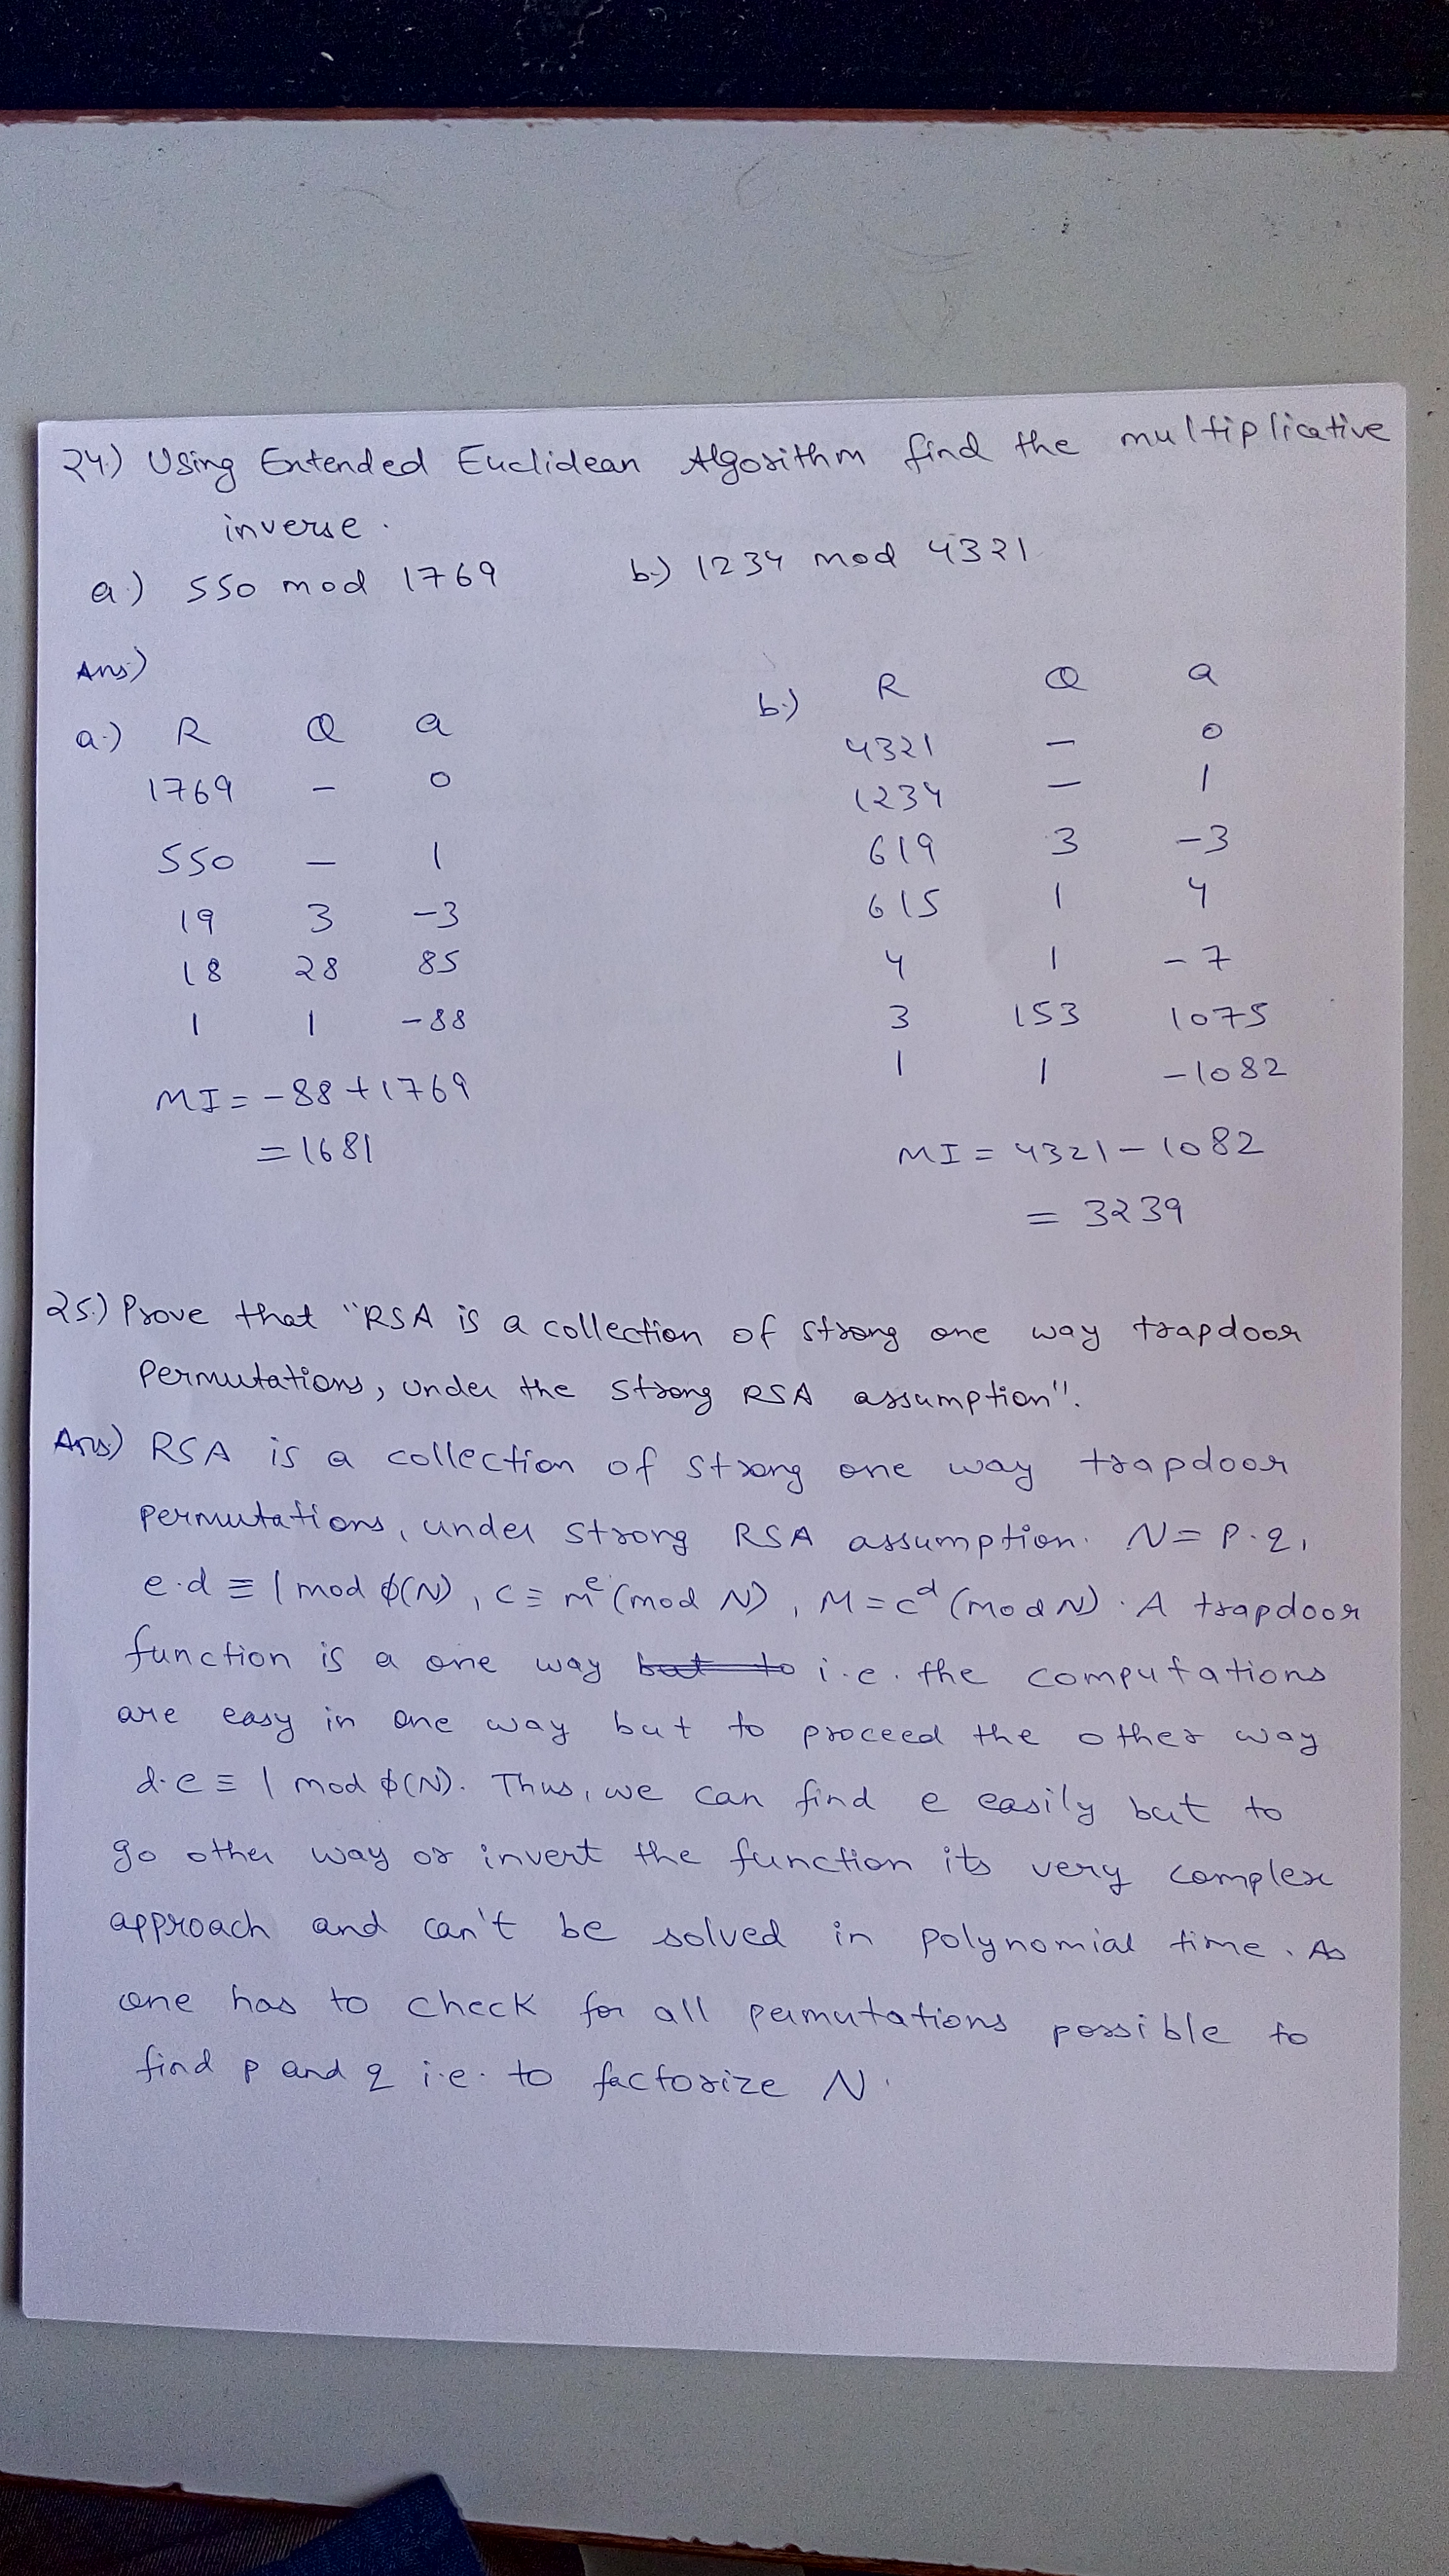 24.) Using Extended Euclidean Algorithm find the multiplicative
inverse.
a.) 550 mod 1769 b.) 1234 mod 4321
Ans.)
a.) R Q a
1769 - 0
550 - 1
19 3 -3
18 28 85
1 1 -88
MI = -88 + 1769
= 1681
b.) R Q a
4321 - 0
1234 - 1
619 3 -3
615 1 4
4 1 -7
3 153 1075
1 1 -1082
MI = 4321 - 1082
= 3239
25.) Prove that "RSA is a collection of strong one way trapdoor
permutations, under the strong RSA assumption".
Ans.) RSA is a collection of strong one way trapdoor
permutations, under strong RSA assumption. N = p.q,
e.d ≡ 1 mod ϕ(N), C ≡ m^e (mod N), M = c^d (mod N). A trapdoor
function is a one way but to i.e. the computations
are easy in one way but to proceed the other way
d.e ≡ 1 mod ϕ(N). Thus, we can find e easily but to
go other way or invert the function its very complex
approach and can't be solved in polynomial time. As
one has to check for all permutations possible to
find p and q i.e. to factorize N.